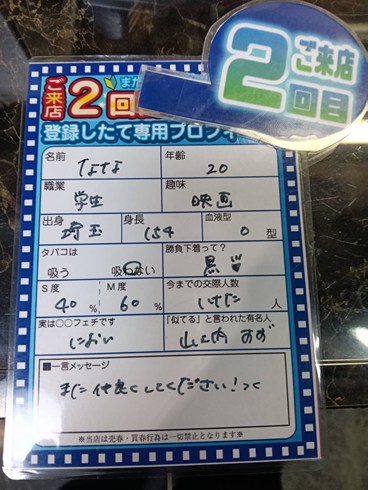 ご来店
2回目
ご来店
2回
また
登録したて専用プロフィ
名前
ななな
年齢
20
職業
学生
趣味
映画
出身
埼玉
身長
154
血液型
O 型
タバコは
吸う 吸わない
勝負下着って?
黒
S度
40 %
M度
60 %
今までの交際人数
人
実は○○フェチです
におい
「似てる」と言われた有名人
山之内 すず
■一言メッセージ
また仲良くしてください!
※当店は売春・買春行為は一切禁止となります※